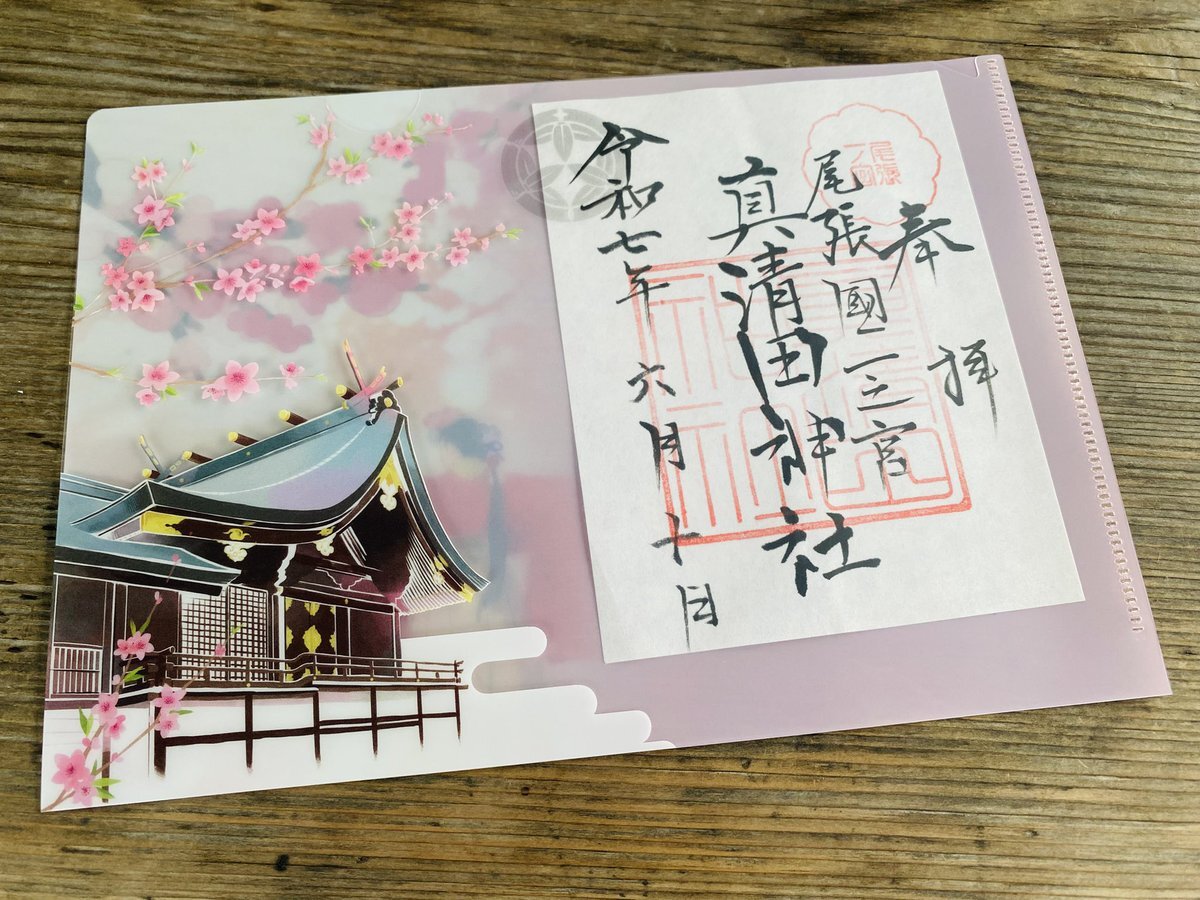 奉拝
尾張
一宮
尾張國一之宮
真清田神社
令和七年六月十日